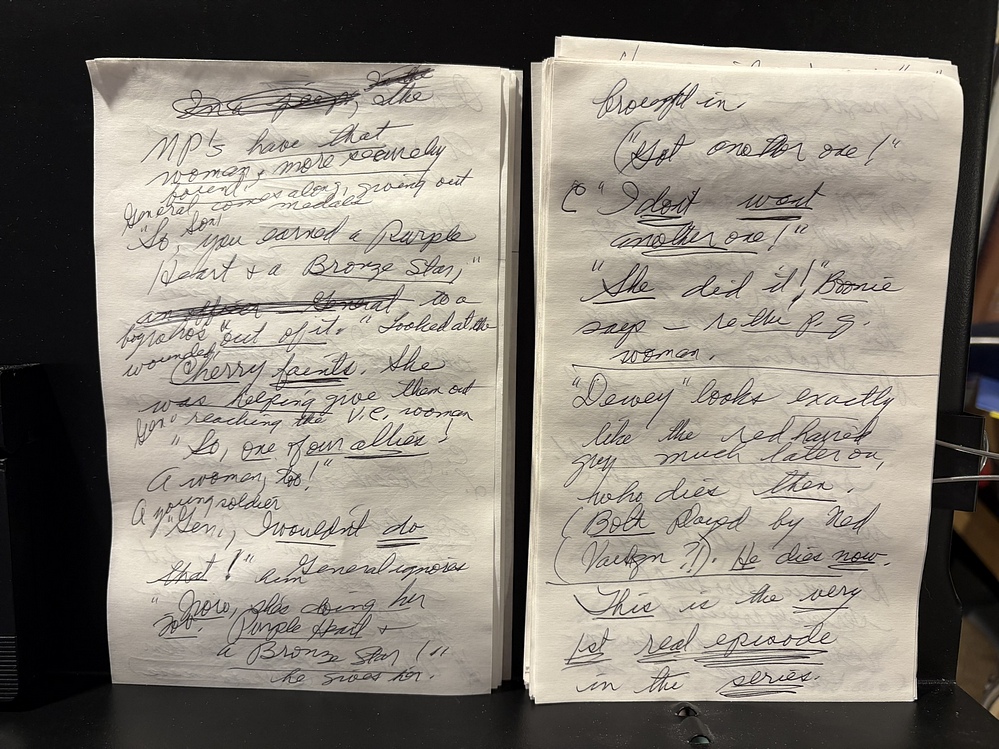 the
MP's have that
woman, more securely
bound.
General comes along, giving out
medals
"So, Son! you earned a Purple
Heart & a Bronze Star,"
an officer General to a
"out of it." Looked at the
wounded
Cherry faints. She
was helping give them out
Gen" reaching the V.C. woman
"So, one of our allies!
A woman, too!"
A young soldier
"Gen., I wouldn't do
that!" General ignores
him
"Now, she's doing her
job. Purple Heart &
a Bronze Star!"
he gives her.
brought in.
("Got another one!"
C "I don't want
another one!"
"She did it!" Boonie
says — re the
woman.
"Dewey" looks exactly
like the red haired
guy much later on,
who dies then.
(Bolt played by Ned
(Vaughn?!). He dies now.
This is the very
1st real episode
in the series.